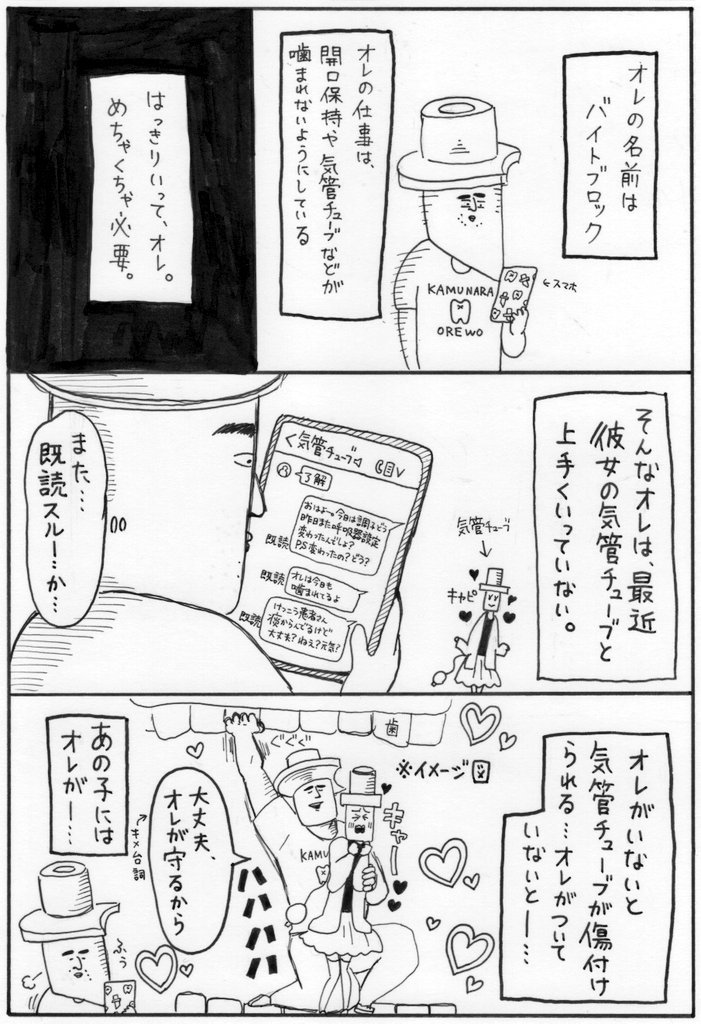 オレの名前は
バイトブロック
KAMUNARA
OREWO
←スマホ
オレの仕事は、
開口保持や気管チューブなどが
噛まれないようにしている
はっきりいって、オレ。
めちゃくちゃ必要。
そんなオレは、最近
彼女の気管チューブと
上手くいっていない。
気管チューブ
キャピ
<気管チューブ
了解
おはよー。今日は調子どう
昨日また呼吸器設定
変わったんでしょ?
P.S変わったの?どう?
既読
オレは今日も
噛まれてるよ
既読
けっこう患者さん
痰からんでるけど
大丈夫?ねえ?元気?
既読
また…
既読スルーか…
オレがいないと
気管チューブが傷付け
られる…オレがついて
いないとー…
歯
※イメージ図
ぐぐぐ
キャー
KAMU
大丈夫、
オレが守るから
キメ台詞
ハハハハ
あの子には
オレがー…
ふぅ